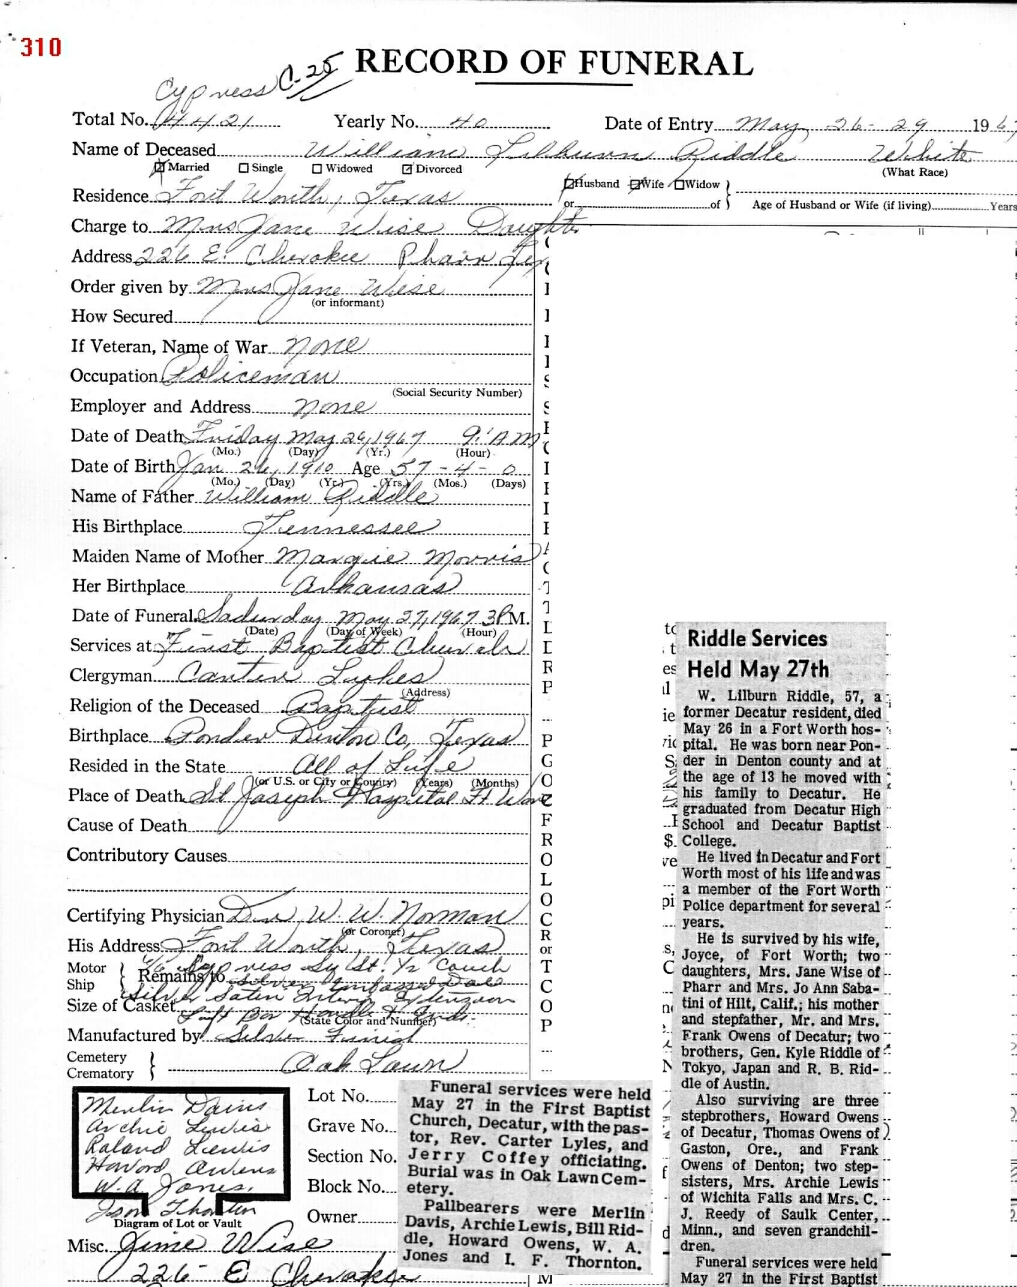 310
RECORD OF FUNERAL
Cypress C-25
Total No. 4421 Yearly No. 40 Date of Entry May 26-29 1967
Name of Deceased William Lilburn Riddle White
Married Single Widowed Divorced (What Race)
Residence Fort Worth, Texas Husband Wife Widow
or of Age of Husband or Wife (if living) Years
Charge to Mrs Jane Wise Daughter
Address 226 E. Cherokee Pharr Tex
Order given by Mrs Jane Wise
(or informant)
How Secured
If Veteran, Name of War None
Occupation Policeman
(Social Security Number)
Employer and Address None
Date of Death Friday May 26, 1967 9: A.M
(Mo.) (Day) (Yr.) (Hour)
Date of Birth Jan 26, 1910 Age 57-4-0
(Mo.) (Day) (Yr.) (Yrs.) (Mos.) (Days)
Name of Father William Riddle
His Birthplace Tennessee
Maiden Name of Mother Margie Morris
Her Birthplace Arkansas
Date of Funeral Saturday May 27, 1967 3 P.M.
(Date) (Day of Week) (Hour)
Services at First Baptist Church
Clergyman Carter Lykes
(Address)
Religion of the Deceased Baptist
Birthplace Ponder Denton Co, Texas
Resided in the State All of Life
(or U.S. or City or County) (Years) (Months)
Place of Death St Joseph Hospital Ft Worth
Cause of Death
Contributory Causes
Certifying Physician Dr W. W. Norman
(or Coroner)
His Address Fort Worth, Texas
Motor Ship Remains to
Size of Casket
(State Color and Number)
Manufactured by Silver
Cemetery Crematory Oak Lawn
Merlin Davis
Archie Lewis
Roland Lewis
Howard Owens
W. A. Jones
Thornton
Diagram of Lot or Vault
Lot No.
Grave No.
Section No.
Block No.
Owner
Misc. Jime Wise
226 E Cherokee
Funeral services were held
May 27 in the First Baptist
Church, Decatur, with the pas-
tor, Rev. Carter Lyles, and
Jerry Coffey officiating.
Burial was in Oak Lawn Cem-
etery.
Pallbearers were Merlin
Davis, Archie Lewis, Bill Rid-
dle, Howard Owens, W. A.
Jones and I. F. Thornton.
Riddle Services
Held May 27th
W. Lilburn Riddle, 57, a
former Decatur resident, died
May 26 in a Fort Worth hos-
pital. He was born near Pon-
der in Denton county and at
the age of 13 he moved with
his family to Decatur. He
graduated from Decatur High
School and Decatur Baptist
College.
He lived in Decatur and Fort
Worth most of his life and was
a member of the Fort Worth
Police department for several
years.
He is survived by his wife,
Joyce, of Fort Worth; two
daughters, Mrs. Jane Wise of
Pharr and Mrs. Jo Ann Saba-
tini of Hilt, Calif.; his mother
and stepfather, Mr. and Mrs.
Frank Owens of Decatur; two
brothers, Gen. Kyle Riddle of
Tokyo, Japan and R. B. Rid-
dle of Austin.
Also surviving are three
stepbrothers, Howard Owens
of Decatur, Thomas Owens of
Gaston, Ore., and Frank
Owens of Denton; two step-
sisters, Mrs. Archie Lewis
of Wichita Falls and Mrs. C.
J. Reedy of Saulk Center,
Minn., and seven grandchil-
dren.
Funeral services were held
May 27 in the First Baptist